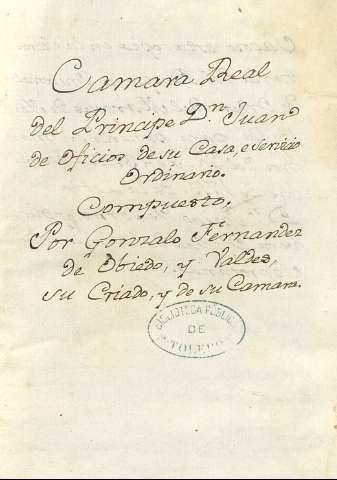 Camara Real
del Principe Dn. Juan
de oficios de su Casa, e servicio
Ordinario.
Compuesto,
Por Gonzalo Fernandez
de Obiedo, y Valdes,
su Criado, y de su Camara.
BIBLIOTECA PÚBLICA
DE
TOLEDO